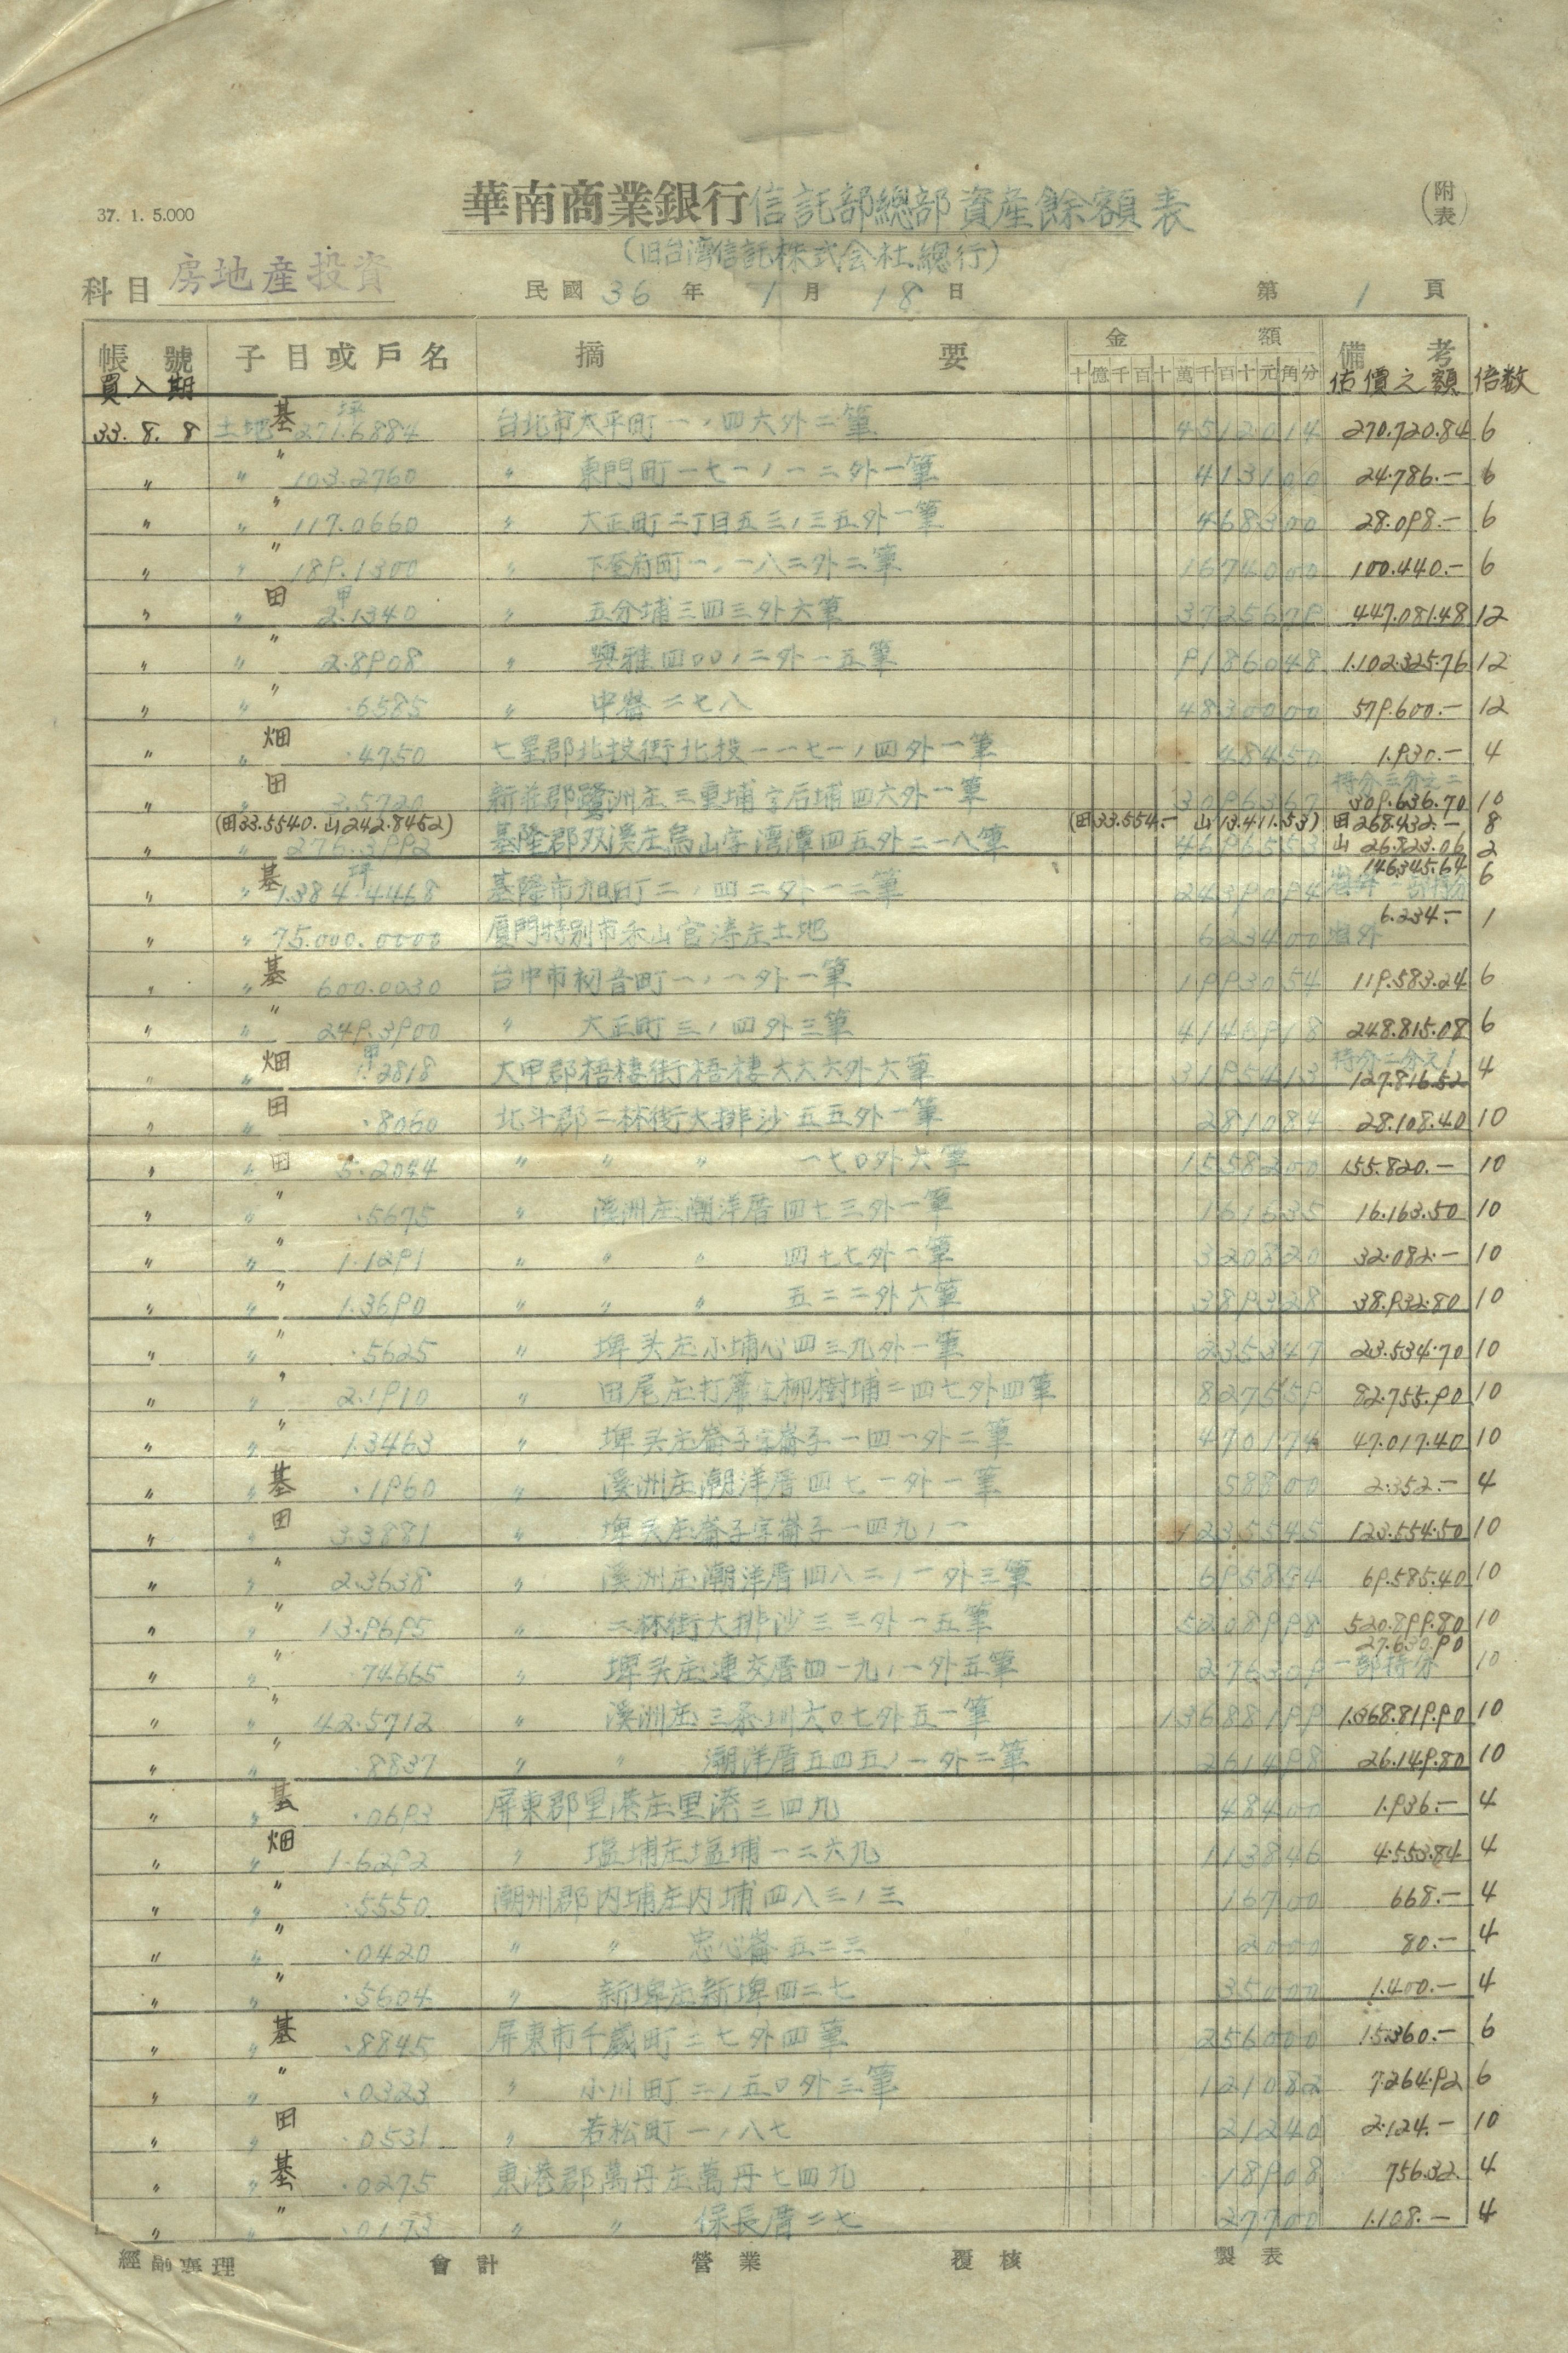 37. 1. 5.000
華南商業銀行信託部總部資產餘額表
(附表)
(旧台湾信託株式会社總行)
科目 房地產投資
民國 36 年 1 月 18 日 第 1 頁
帳號 子目或戶名 摘要 金額 備考
十億千百十萬千百十元角分
買入期 估價之額 倍数
33.8.8 土地 基 271.6884 坪 台北市太平町一ノ四六外二筆 4512014 270.720.84 6
〃 〃 〃 103.2760 〃 東門町一七一ノ一二外一筆 413100 24.786.— 6
〃 〃 〃 117.0660 〃 大正町二丁目五三ノ三五外一筆 468300 28.098.— 6
〃 〃 〃 189.1300 〃 下奎府町一ノ一八二外二筆 1674000 100.440.— 6
〃 〃 田 甲 2.1340 〃 五分埔三四三外六筆 3725679 447.081.48 12
〃 〃 〃 2.8908 〃 興雅四00ノ二外一五筆 9186048 1.102.325.76 12
〃 〃 〃 .6585 〃 中崙二七八 4830000 579.600.— 12
〃 〃 畑 .4750 七星郡北投街北投一一七一ノ四外一筆 48450 1.930.— 4
〃 田 3.5720 新莊郡鷺洲庄三重埔字后埔四六外一筆 3096367 持分三分之二 309.636.70 10
(田33.5540. 山242.8452) (田33.554.— 山13.411.53) 田268.432.— 8
〃 276.3992 基隆郡双溪庄烏山字湾潭四五外二一八筆 4696553 山 26.823.06 2
〃 〃 基 坪 1.384.4468 基隆市旭町二ノ四二外一二筆 2439094 146.345.64 6
〃 〃 75.000.0000 廈門特別市禾山官潯庄土地 623400 省外 6.234.— 1
〃 〃 基 600.0030 台中市初音町一ノ一外一筆 1993054 119.583.24 6
〃 〃 〃 249.3900 〃 大正町三ノ四外三筆 4146918 248.815.08 6
〃 〃 畑 甲 1.2818 大甲郡梧棲街梧棲六六六外六筆 3195413 持分二分之1 127.816.52 4
〃 〃 田 .8060 北斗郡二林街大排沙五五外一筆 281084 28.108.40 10
〃 〃 田 5.2044 〃 〃 〃 一七0外六筆 1558200 155.820.— 10
〃 〃 〃 .5675 〃 溪洲庄潮洋厝四七三外一筆 161635 16.163.50 10
〃 〃 〃 1.1291 〃 〃 〃 四七七外一筆 320820 32.082.— 10
〃 〃 〃 1.3690 〃 〃 〃 五二二外六筆 389328 38.932.80 10
〃 〃 〃 .5625 〃 埤头庄小埔心四三九外一筆 235347 23.534.70 10
〃 〃 〃 2.1910 〃 田尾庄打簾字柳樹埔二四七外四筆 827559 82.755.90 10
〃 〃 〃 1.3463 〃 埤头庄崙子字崙子一四一外二筆 470174 47.017.40 10
〃 〃 基 .1960 〃 溪洲庄潮洋厝四七一外一筆 58800 2.352.— 4
〃 〃 田 3.3881 〃 埤头庄崙子字崙子一四九ノ一 1235545 123.554.50 10
〃 〃 〃 2.3638 〃 溪洲庄潮洋厝四八二ノ一外三筆 695854 69.585.40 10
〃 〃 〃 13.9695 〃 二林街大排沙三三外一五筆 5208998 520.899.80 10
〃 〃 〃 .74665 〃 埤头庄連交厝四一九ノ一外五筆 276309 27.630.90 一部持分 10
〃 〃 〃 42.5712 〃 溪洲庄三条圳六0七外五一筆 13688199 1.368.819.90 10
〃 〃 〃 .8837 〃 〃 潮洋厝五四五ノ一外二筆 261498 26.149.80 10
〃 〃 基 .0693 屏東郡里港庄里港三四九 48400 1.936.— 4
〃 〃 畑 1.6292 〃 塩埔庄塩埔一二六九 113846 4.553.84 4
〃 〃 〃 .5550 潮州郡内埔庄内埔四八三ノ三 16700 668.— 4
〃 〃 〃 .0420 〃 〃 忠心崙五二三 2000 80.— 4
〃 〃 〃 .5604 〃 新埤庄新埤四二七 35000 1.400.— 4
〃 〃 基 .8845 屏東市千歲町三七外四筆 256000 15.360.— 6
〃 〃 〃 .0323 〃 小川町二ノ五0外三筆 121082 7.264.92 6
〃 〃 田 .0531 〃 若松町一ノ八七 21240 2.124.— 10
〃 〃 基 .0275 東港郡萬丹庄萬丹七四九 18908 756.32 4
〃 〃 〃 .0173 〃 〃 保長厝二七 27700 1.108.— 4
經副襄理 會計 營業 覆核 製表